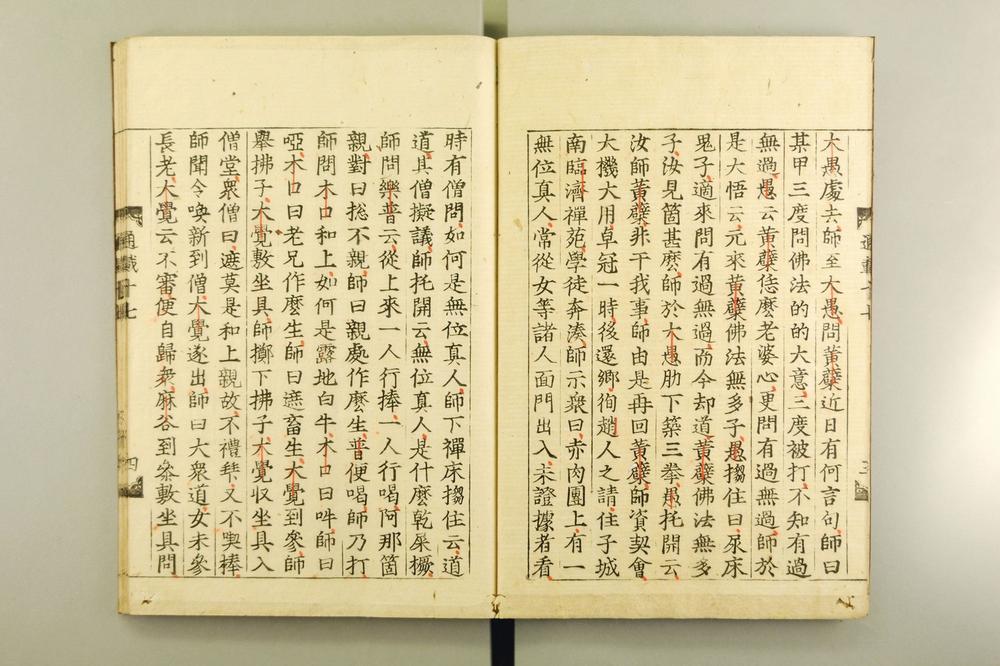 大愚處去師至大愚問黃蘗近日有何言句師曰
某甲三度問佛法的的大意三度被打不知有過
無過愚云黃蘗恁麽老婆心更問有過無過師於
是大悟云元來黃蘗佛法無多子愚搊住曰尿床
鬼子適來問有過無過而今却道黃蘗佛法無多
子汝見箇甚麽師於大愚肋下築三拳愚托開云
汝師黃蘗非干我事師由是再回黃蘗師資契會
大機大用卓冠一時後還鄉徇趙人之請住子城
南臨濟禪苑學徒奔湊師示衆曰赤肉團上有一
無位真人常從女等諸人面門出入未證據者看
時有僧問如何是無位真人師下禪床搊住云道
道其僧擬議師托開云無位真人是什麽乾屎橛
師問樂普云從上來一人行捧一人行喝阿那箇
親對曰捴不親師曰親處作麽生普便喝師乃打
師問木口和上如何是露地白牛木口曰吽師曰
啞木口曰老兄作麽生師曰遮畜生大覺到參師
舉拂子大覺敷坐具師擲下拂子大覺収坐具入
僧堂衆僧曰遮莫是和上親故不禮拜又不喫捧
師聞令喚新到僧大覺遂出師曰大衆道女未參
長老大覺云不審便自歸衆麻谷到參敷坐具問
通載十七
四